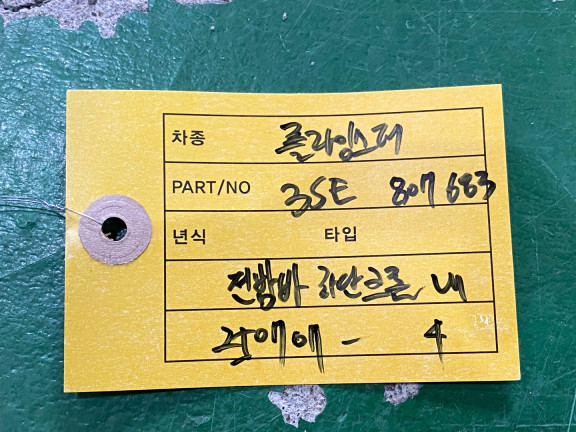 차종 플라잉스퍼
PART/NO 3SE 807 683
년식 타입
전범바 하단크롬, 내
- 4